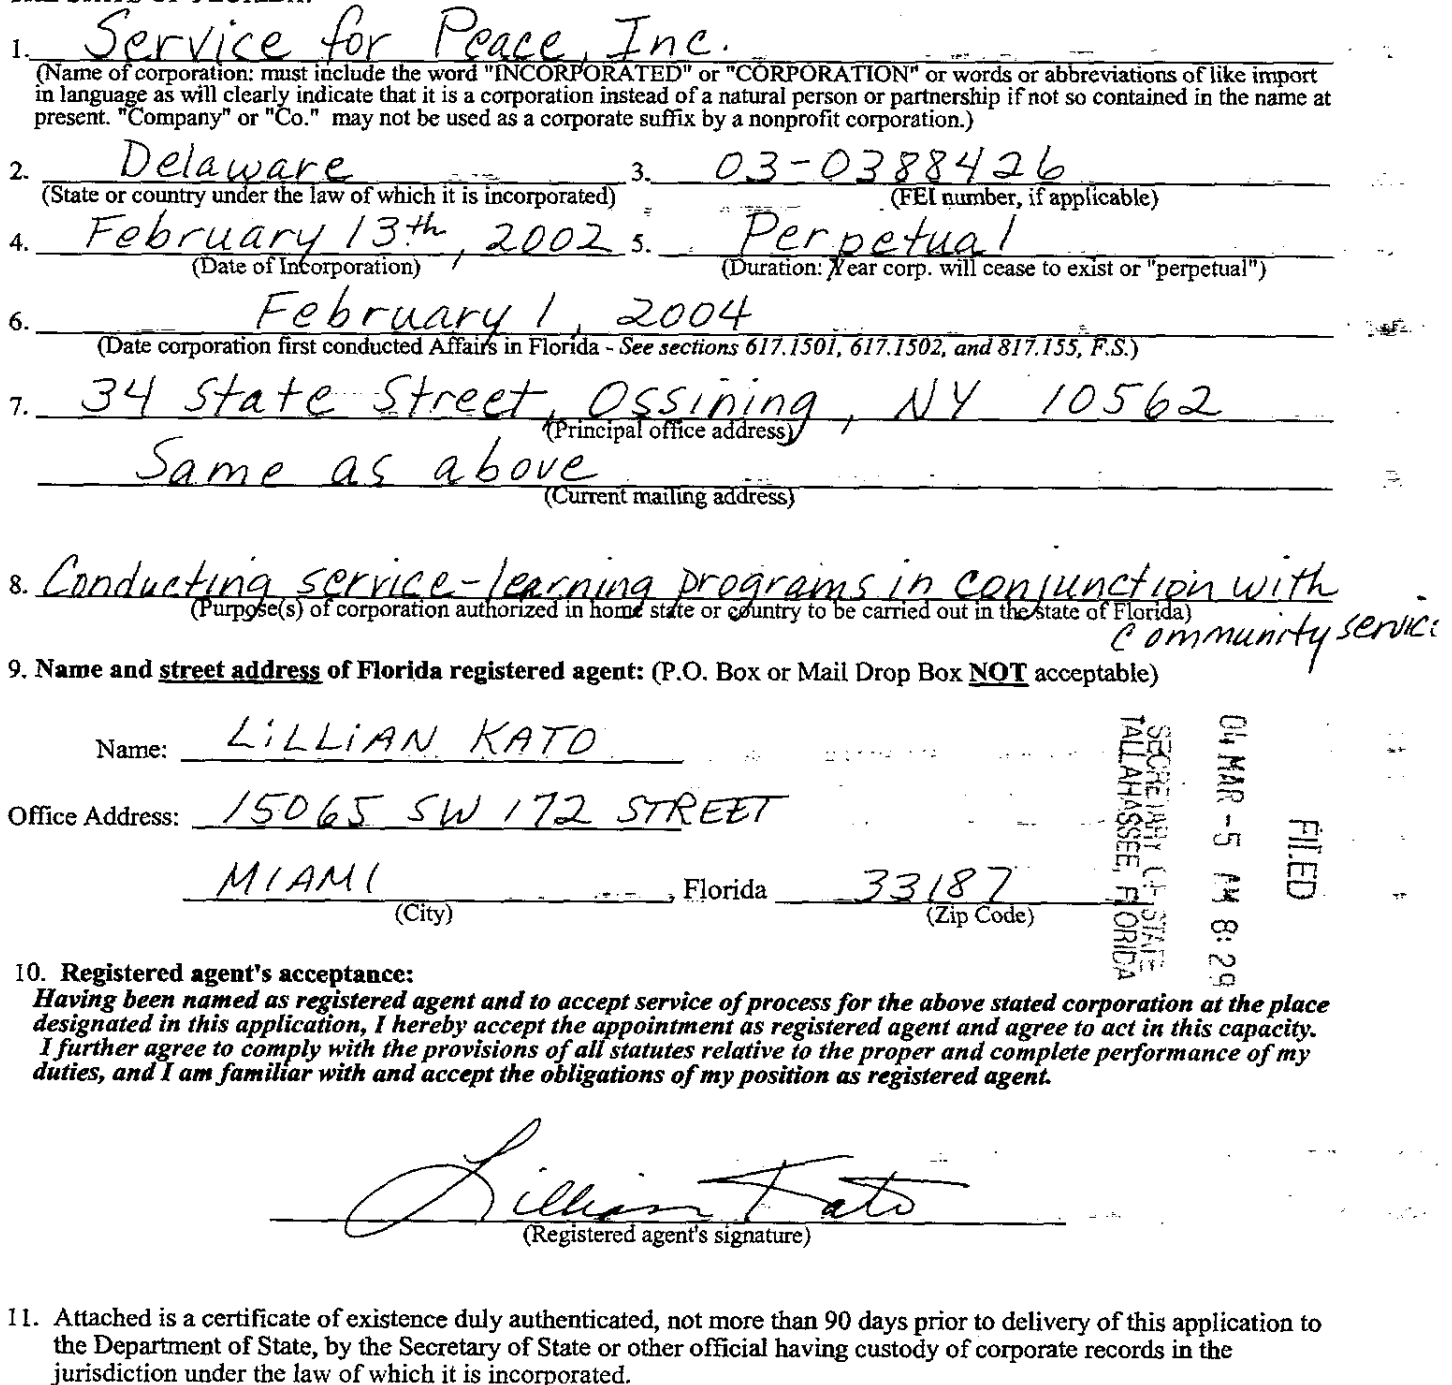 1. Service for Peace, Inc.
(Name of corporation: must include the word "INCORPORATED" or "CORPORATION" or words or abbreviations of like import
in language as will clearly indicate that it is a corporation instead of a natural person or partnership if not so contained in the name at
present. "Company" or "Co." may not be used as a corporate suffix by a nonprofit corporation.)
2. Delaware 3. 03-0388426
(State or country under the law of which it is incorporated) (FEI number, if applicable)
4. February 13th, 2002 5. Perpetual
(Date of Incorporation) (Duration: Year corp. will cease to exist or "perpetual")
6. February 1, 2004
(Date corporation first conducted Affairs in Florida - See sections 617.1501, 617.1502, and 817.155, F.S.)
7. 34 State Street, Ossining, NY 10562
(Principal office address)
Same as above
(Current mailing address)
8. Conducting service-learning programs in conjunction with
(Purpose(s) of corporation authorized in home state or country to be carried out in the state of Florida)
community service
9. Name and street address of Florida registered agent: (P.O. Box or Mail Drop Box NOT acceptable)
Name: LiLLiAN KATO
Office Address: 15065 SW 172 STREET
MIAMI, Florida 33187
(City) (Zip Code)
FILED
04 MAR -5 AM 8:29
SECRETARY OF STATE
TALLAHASSEE, FLORIDA
10. Registered agent's acceptance:
Having been named as registered agent and to accept service of process for the above stated corporation at the place
designated in this application, I hereby accept the appointment as registered agent and agree to act in this capacity.
I further agree to comply with the provisions of all statutes relative to the proper and complete performance of my
duties, and I am familiar with and accept the obligations of my position as registered agent.
Lillian Kato
(Registered agent's signature)
11. Attached is a certificate of existence duly authenticated, not more than 90 days prior to delivery of this application to
the Department of State, by the Secretary of State or other official having custody of corporate records in the
jurisdiction under the law of which it is incorporated.